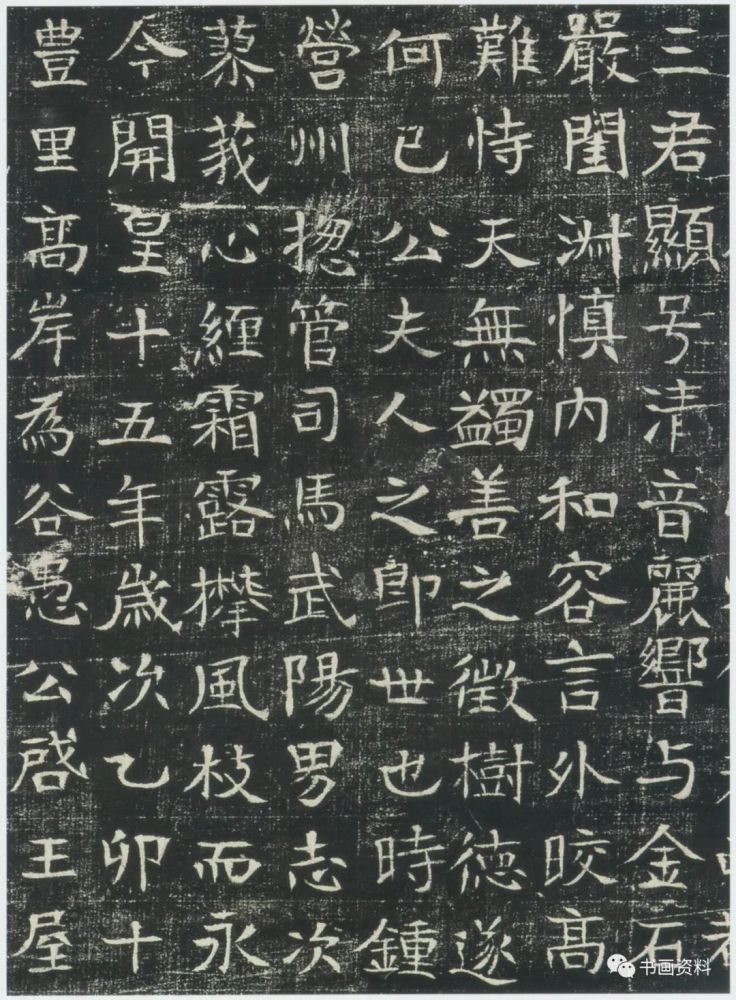 三君顯号清音麗響与金石
嚴閨淑慎內和容言外晈髙
難恃天無蠲善之徵樹德遂
何已公夫人之即世也時鍾
營州揔管司馬武陽男志次
蓼莪心緾霜露攀風枝而永
今開皇十五年歲次乙卯十
豊里髙岸為谷愚公啓王屋
书画资料